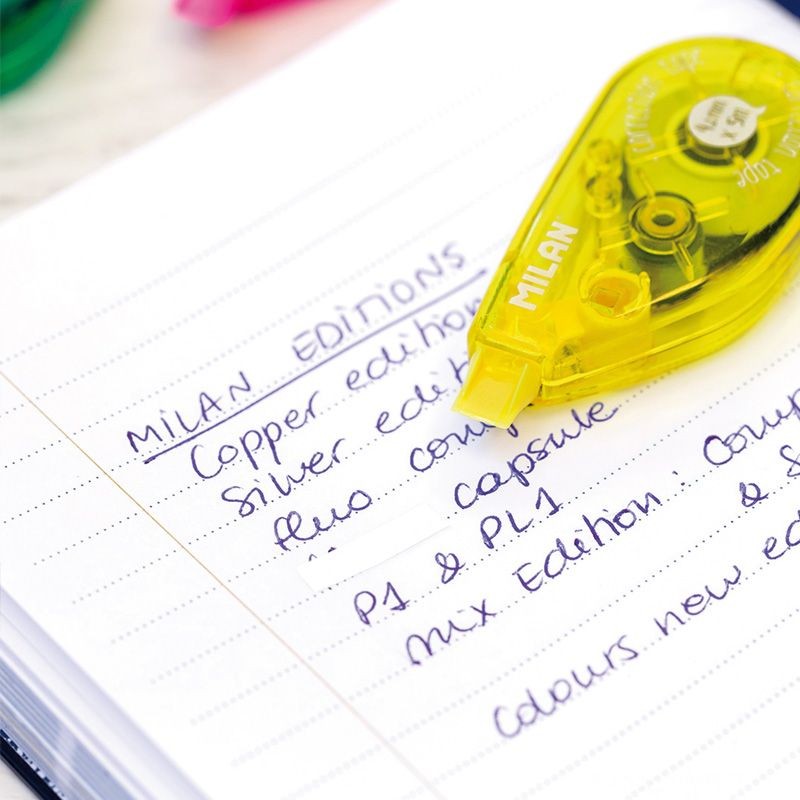 MILAN EDITIONS
Copper edition
Silver edit
fluo comp
capsule
P1 & PL1
Mix Edition: Comp
& S
Colours new ed
MILAN
correction tape
x 5m